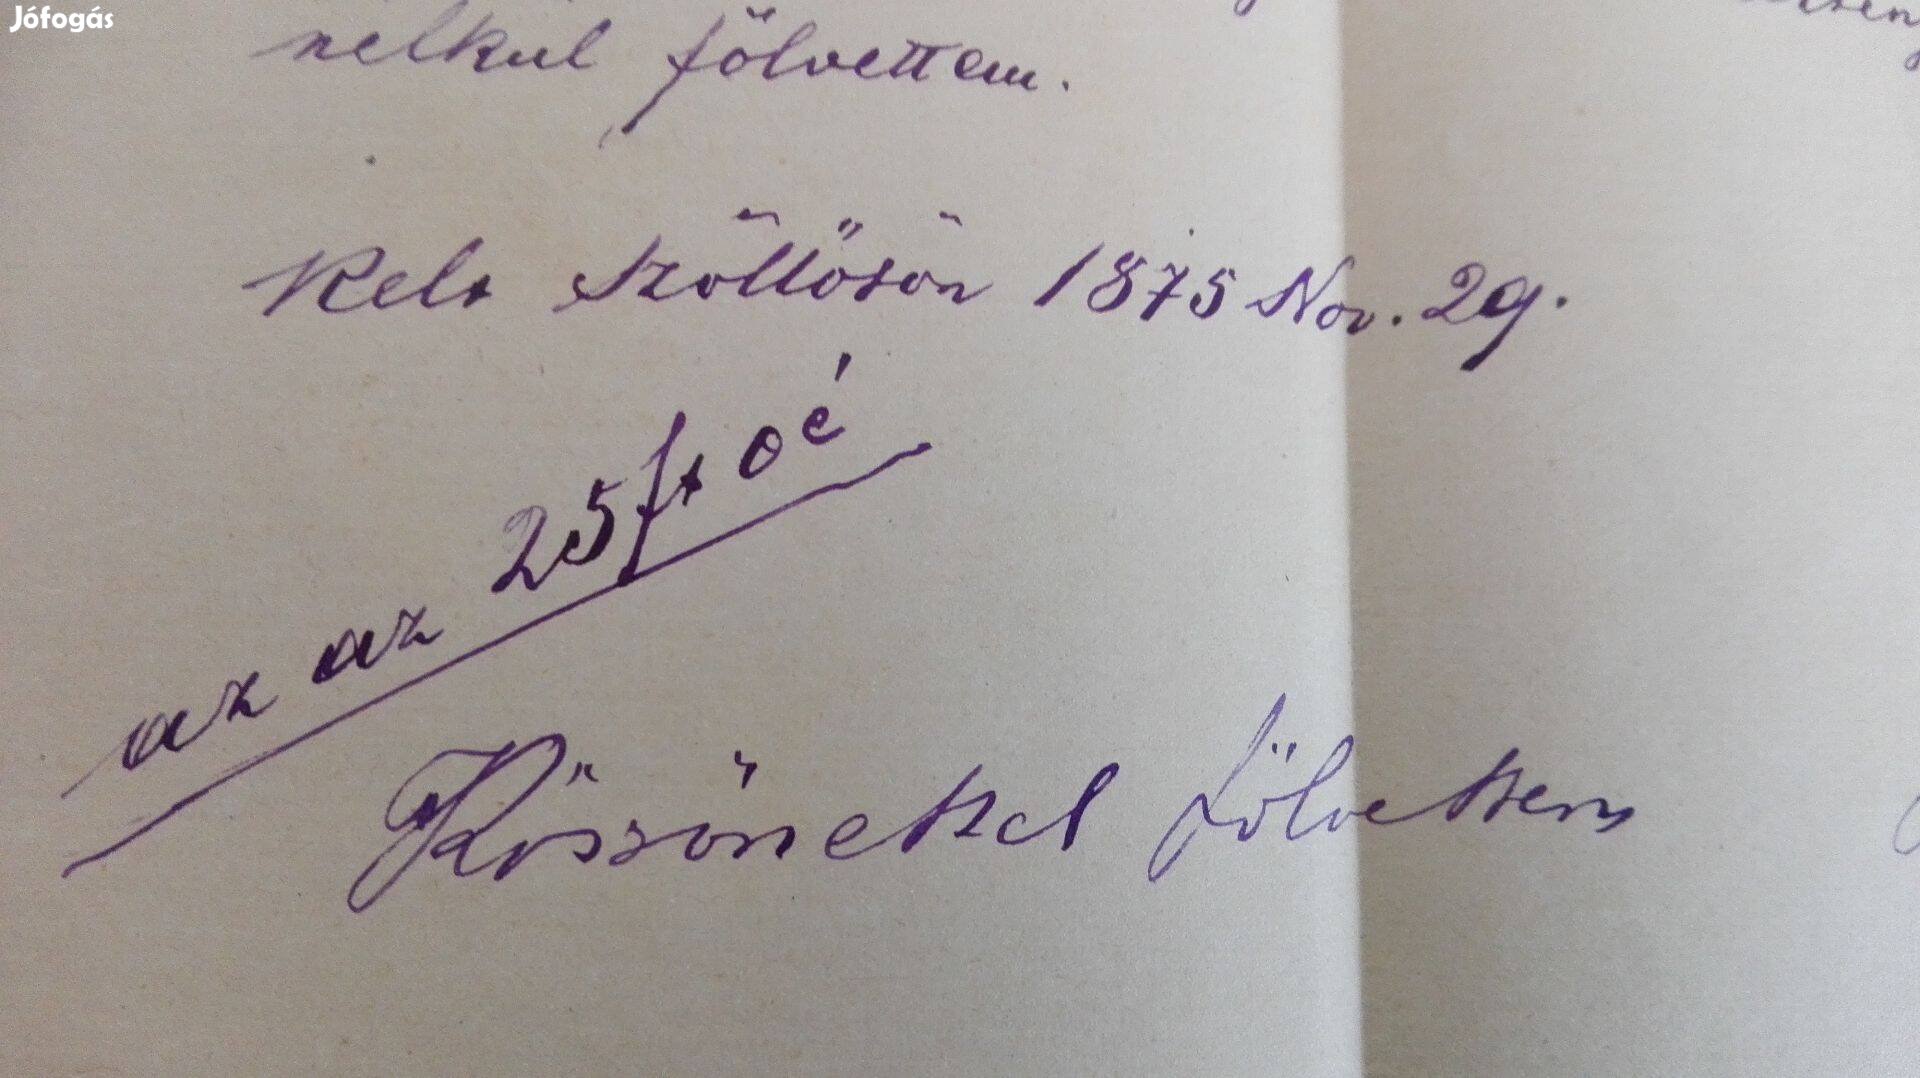 Jófogás
nelkul fölvettem.
Kelt Szőllősön 1875 Nov. 29.
az az 25 frt o é
Kössönettel fölvettem